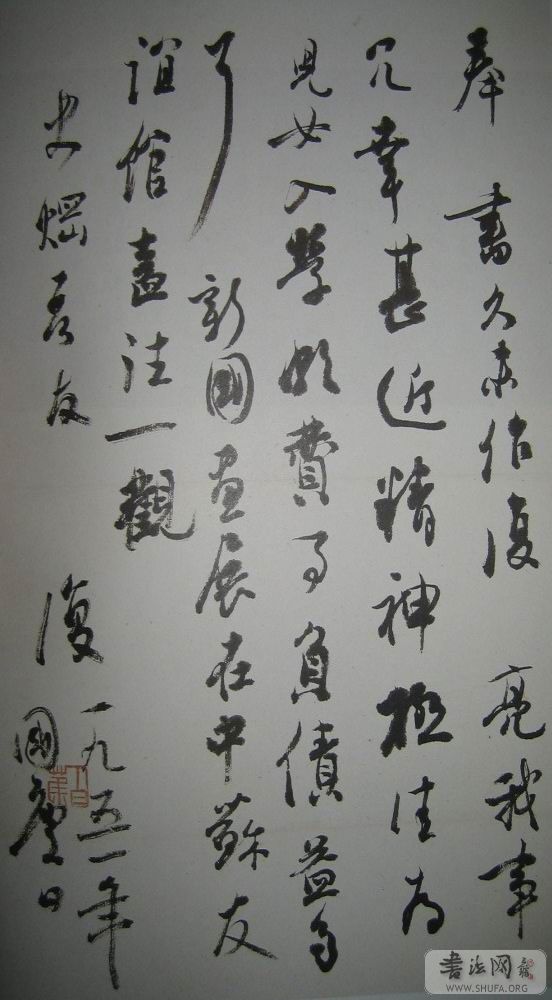 奉 書久未作復 亮我事
冗幸甚近精神極佳為
児女入學所費了負債益多
了 新國画展在中蘇友
誼館盍往一觀
史
良友
復 一九五一年
國慶日
書法网
WWW.SHUFA.ORG